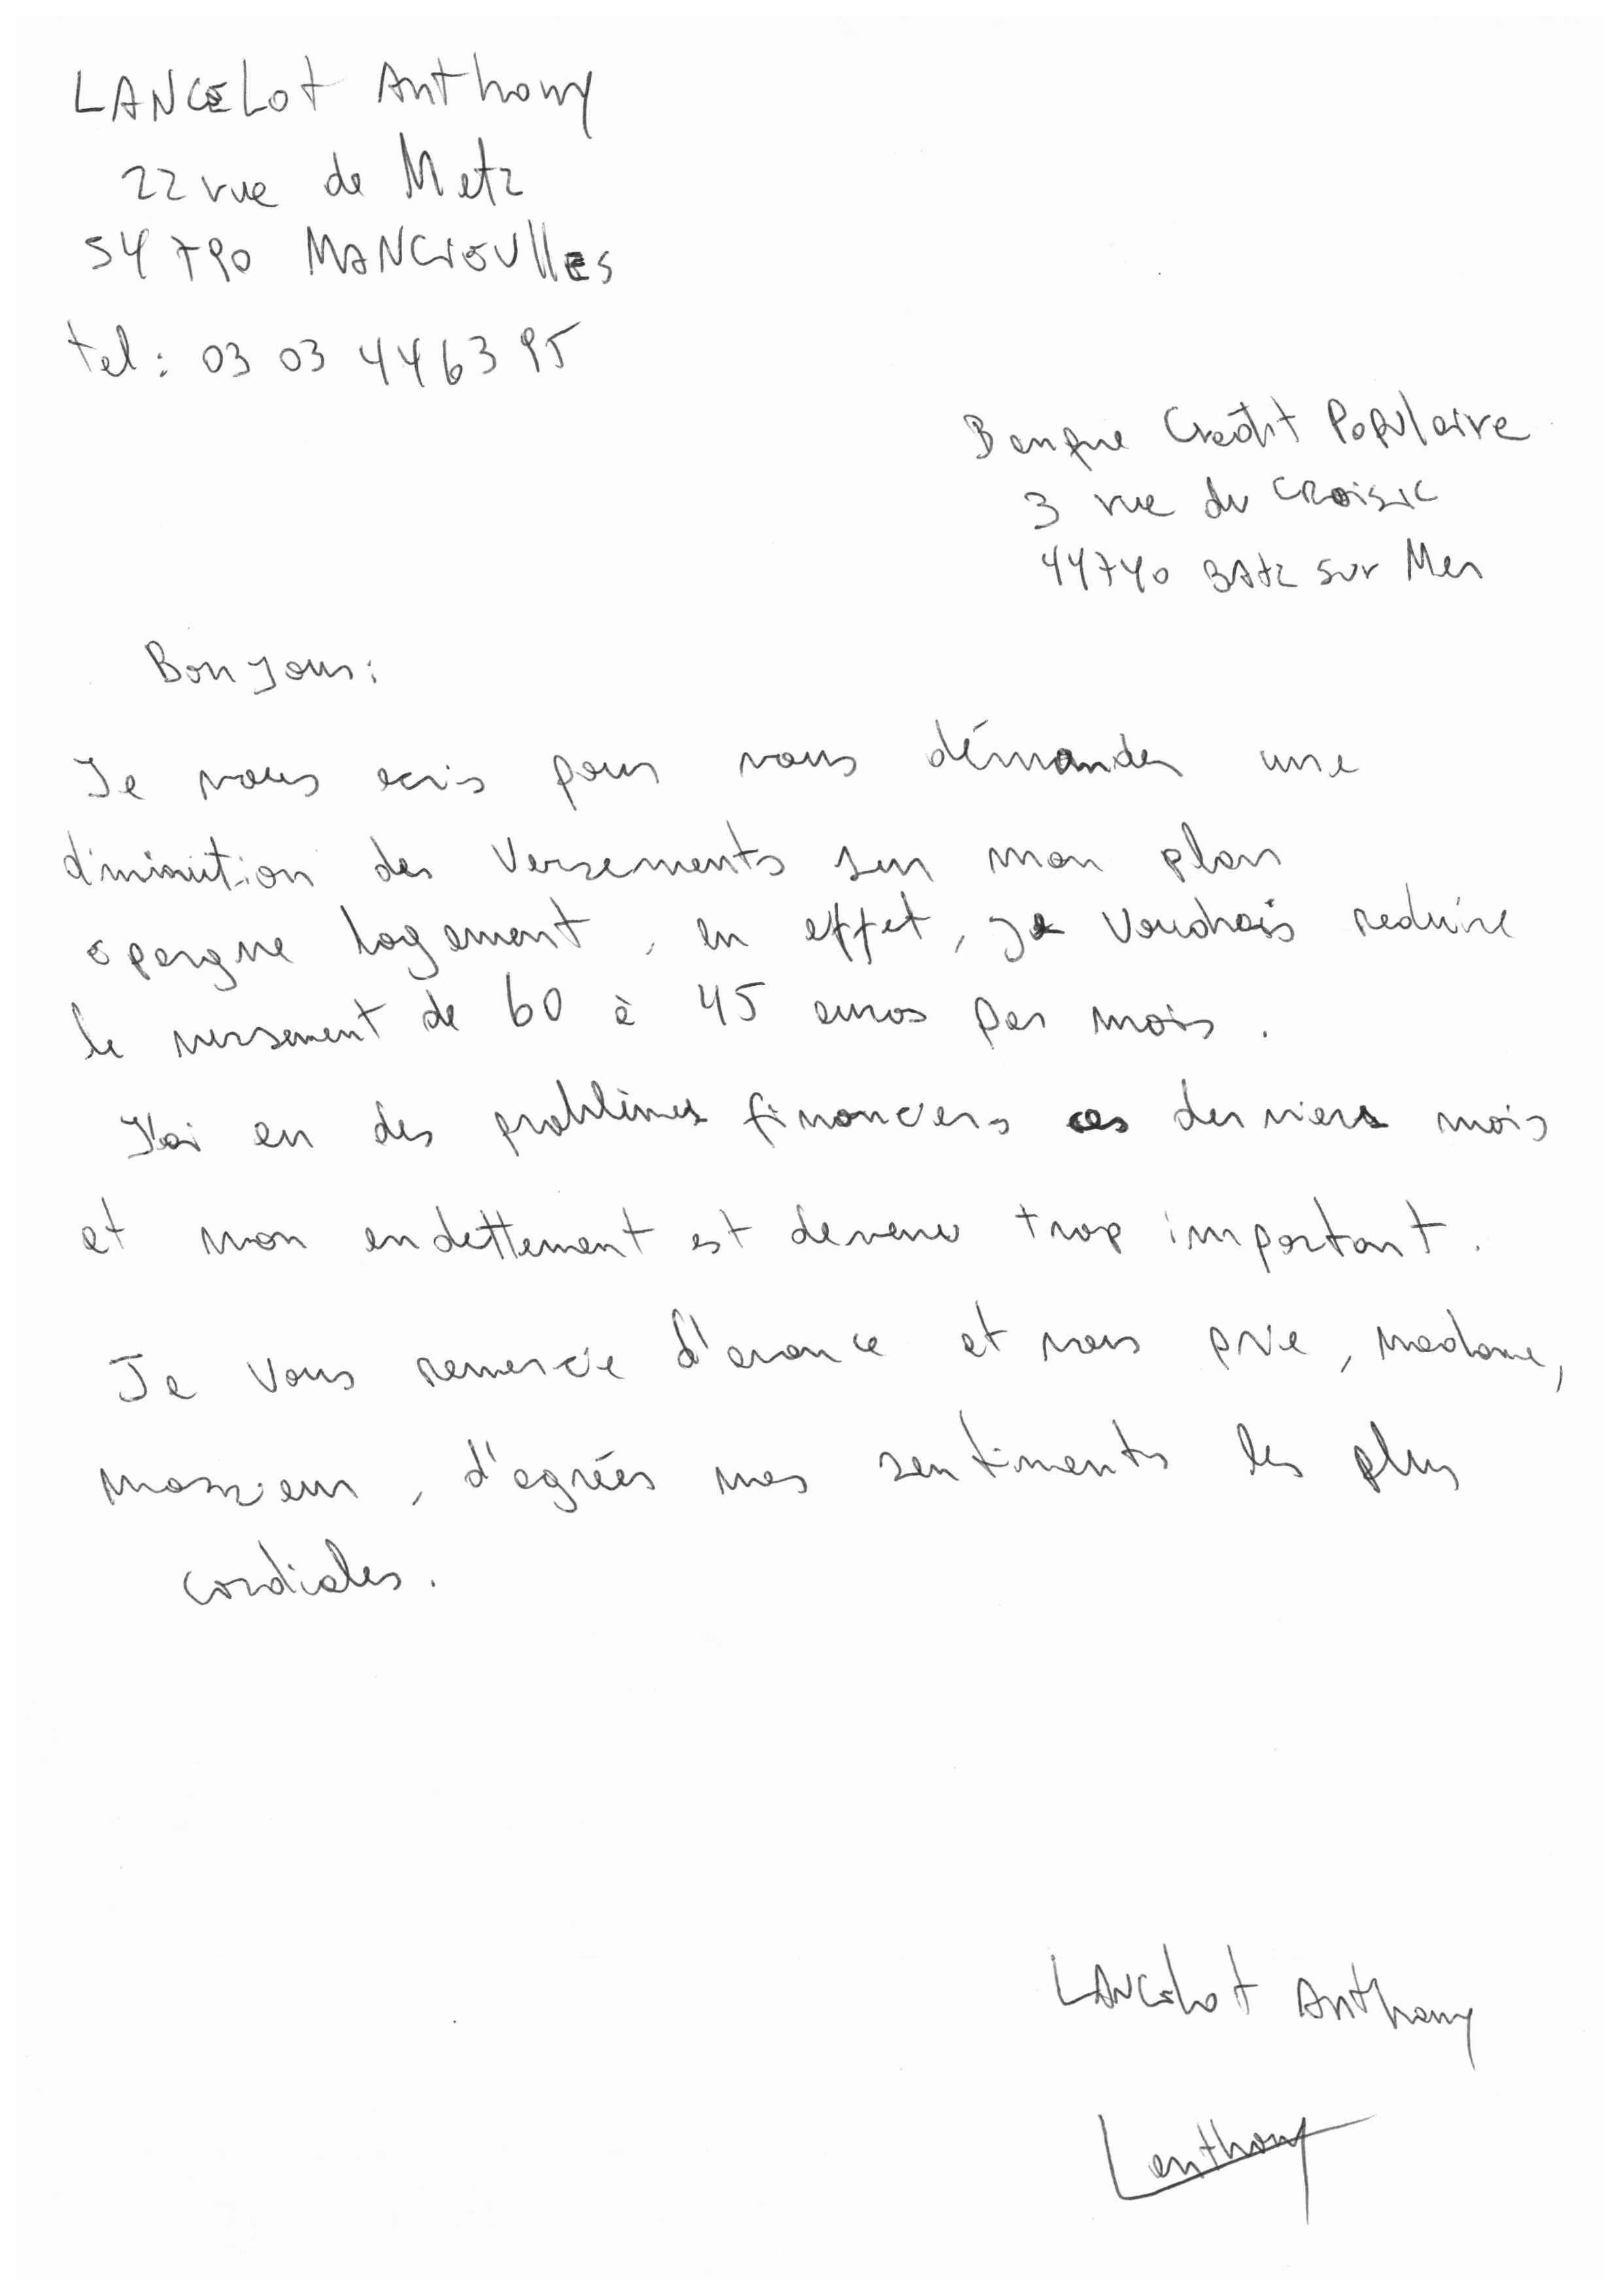 LANCELot Anthony
22 rue de Metz
54 790 MANCIEULLES
tel : 03 03 44 63 95
Banque Crédit Populaire
3 rue du CROISIC
44740 BATZ sur Mer
Bonjour :
Je vous ecris pour vous démander une
diminution des versements sur mon plan
épargne logement, en effet, je voudrais reduire
le versement de 60 à 45 euros par mois.
J'ai eu des problèmes financiers ces derniers mois
et mon endettement est devenu trop important.
Je vous remercie d'avance et vous prie, madame,
monsieur, d'agréer mes sentiments les plus
cordiales.
LANCELot Anthony
Lanthony